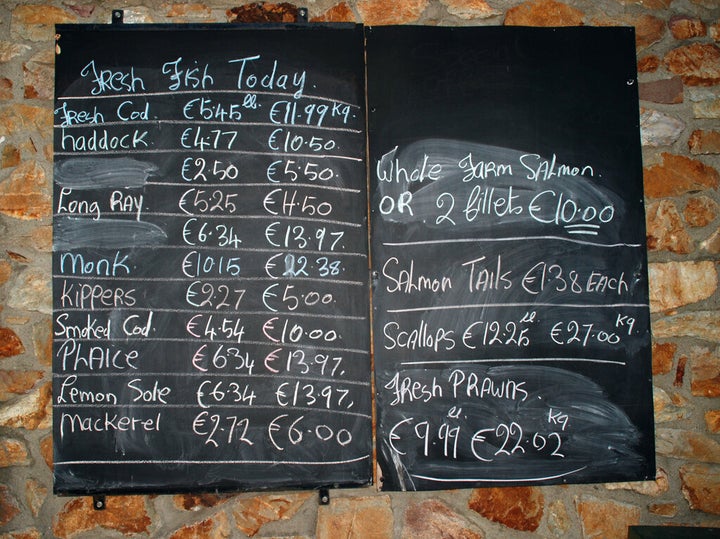 Fresh Fish Today.
Fresh Cod. €5.45 lb. €11.99 Kg.
haddock. €4.77 €10.50.
€2.50 €5.50.
Long Ray €5.25 €11.50
€6.34 €13.97.
Monk. €10.15 €22.38.
Kippers €2.27 €5.00.
Smoked Cod. €4.54 €10.00.
PhAice €6.34 €13.97,
Lemon Sole €6.34 €13.97,
Mackerel €2.72 €6.00
Whole Farm Salmon.
OR 2 fillets €10.00
Salmon Tails €1.38 Each
Scallops €12.25 lb. €27.00 Kg.
Fresh Prawns.
€9.99 lb. €22.02 Kg